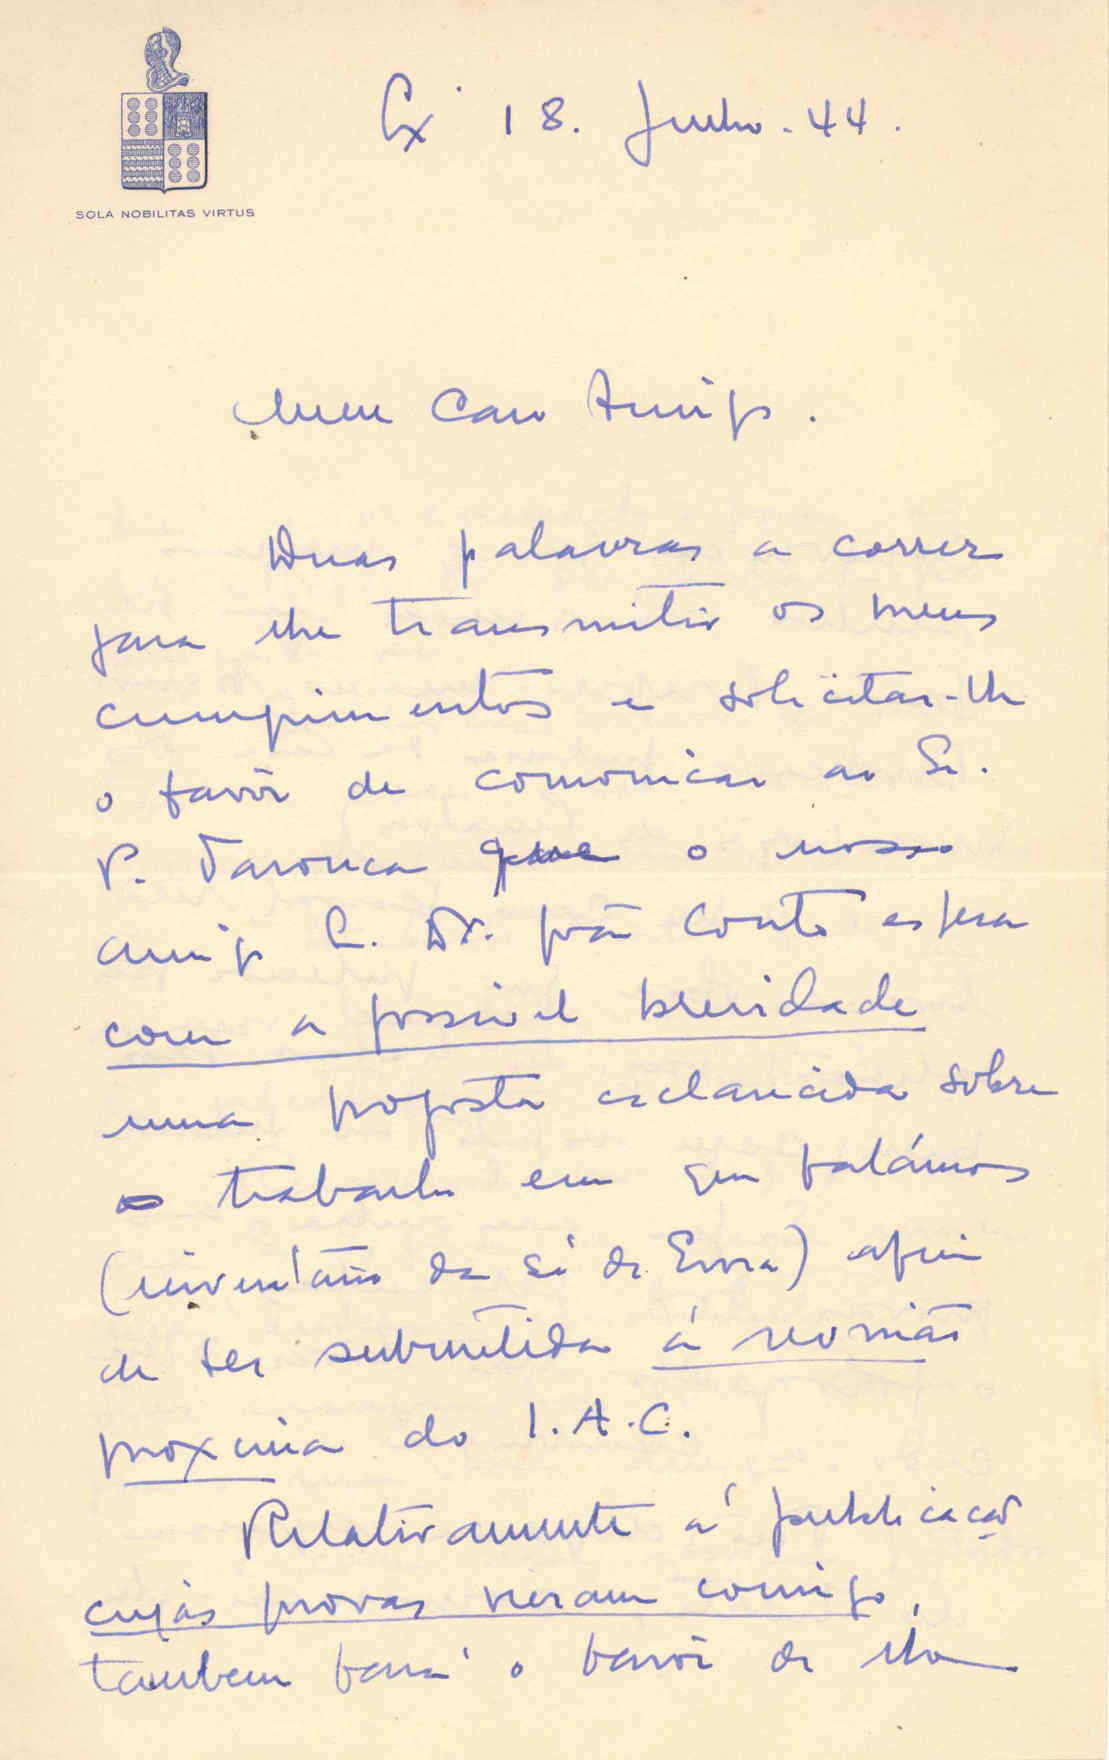 SOLA NOBILITAS VIRTUS
Lx 18. Junho. 44.
Meu Caro Amigo.
Duas palavras a correr
para lhe transmitir os meus
cumprimentos e solicitar-lhe
o favôr de comonicar ao Sr.
P. Tarouca que o nosso
amigo Dr. João Couto espera
com a possivel brevidade
uma proposta esclarecida sobre
o trabalho em que falámos
(inventário da Sé de Evora) afim
de ser submetida á reonião
proxima do I.A.C.
Relativamente á publicação
cujas provas vieram comigo,
tambem fará o favôr de lhe